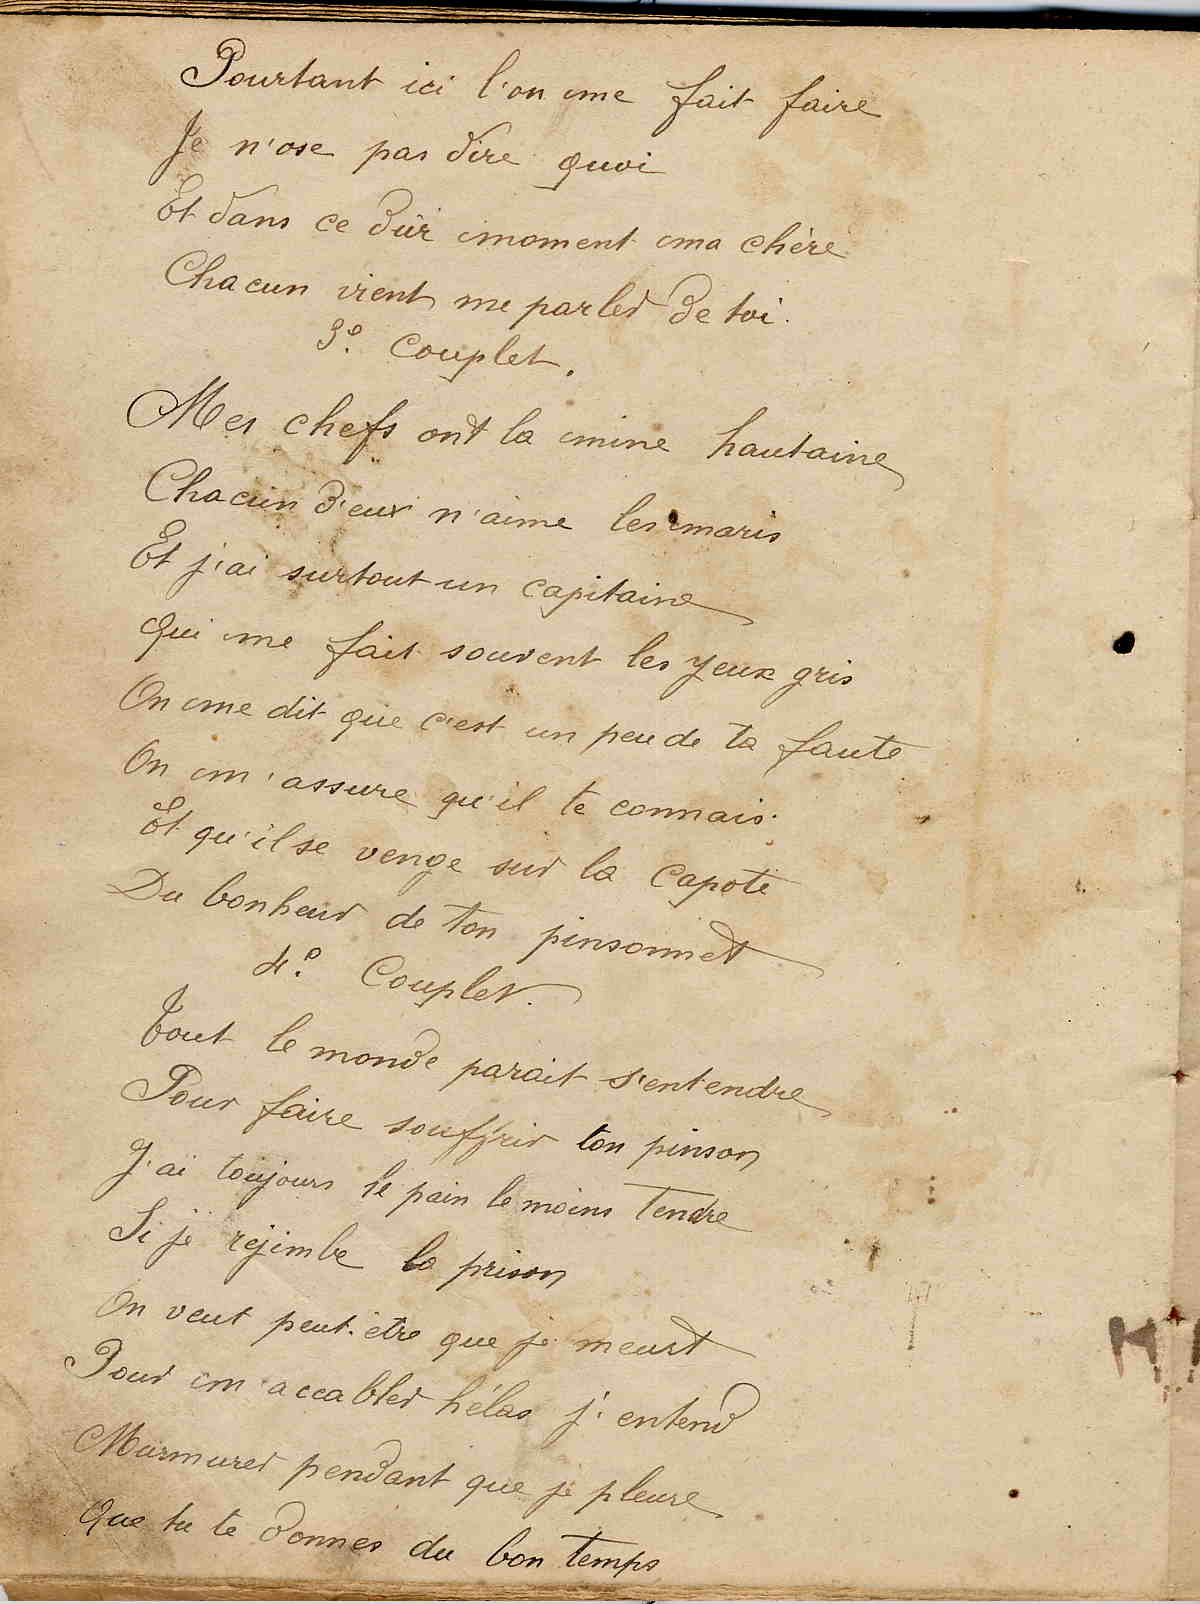 Pourtant ici l'on me fait faire
Je n'ose pas dire quoi
Et dans ce dûr moment ma chère
Chacun vient me parler de toi.
3e. Couplet.
Mes chefs ont la mine hautaine
Chacun d'eux n'aime les maris
Et j'ai surtout un capitaine
Qui me fait souvent les yeux gris
On me dit que c'est un peu de ta faute
On m'assure qu'il te connais.
Et qu'il se venge sur la Capote
Du bonheur de ton pinsonnet
4e. Couplet.
Tout le monde parait s'entendre
Pour faire souffrir ton pinson
J'ai toujours le pain le moins tendre
Si je rejimbe la prison
On veut peut-être que je meurt
Pour m'accabler hélas j'entend
Murmurer pendant que je pleure
Que tu te donnes du bon temps